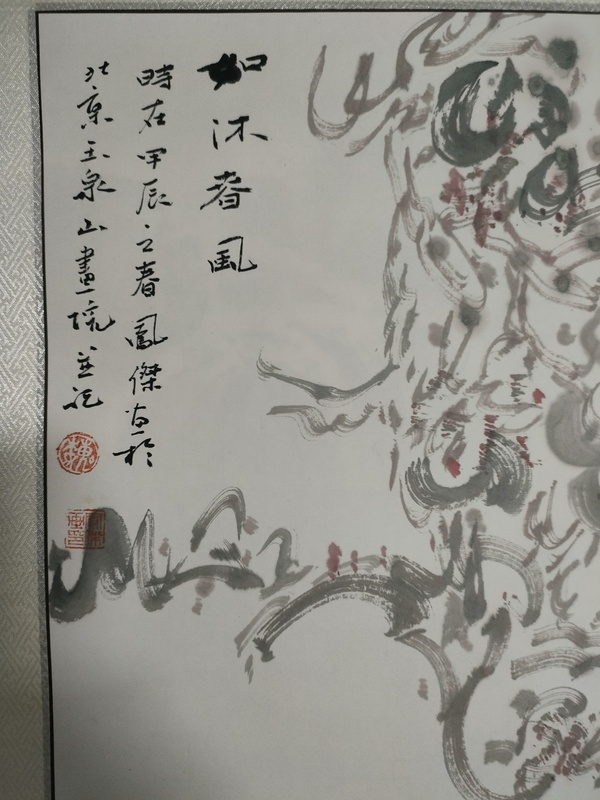 如沐春风
時在甲辰之春鳳傑画於
北京玉泉山畫院並記